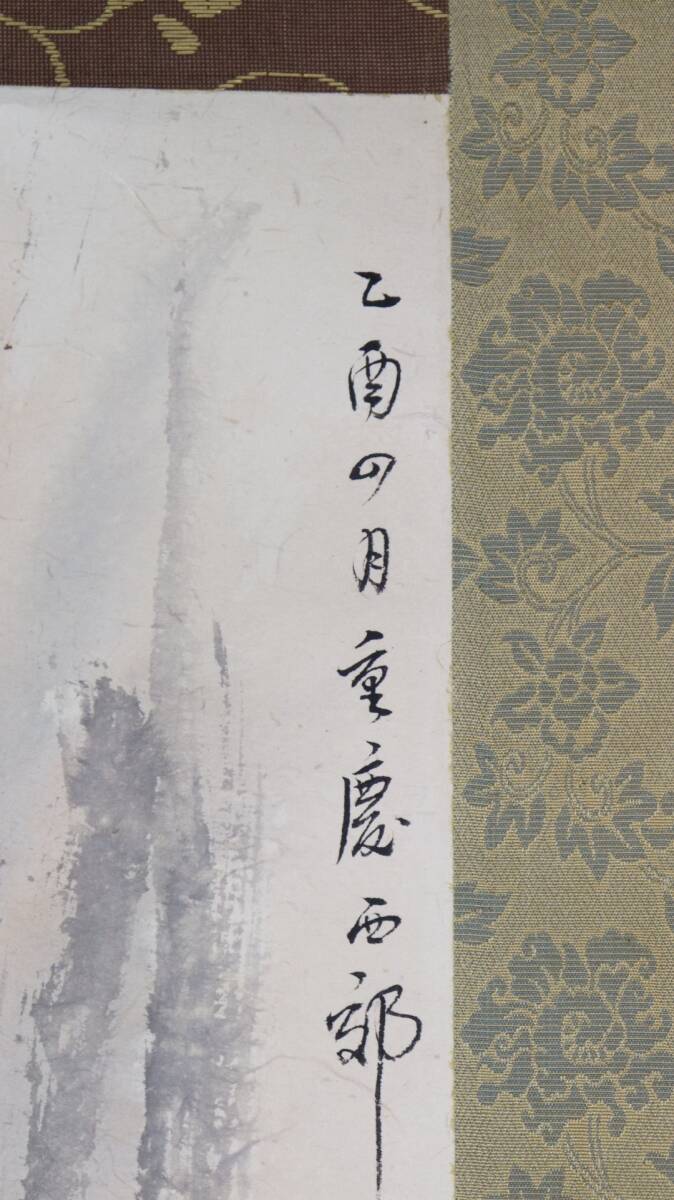 乙酉四月重慶西郊